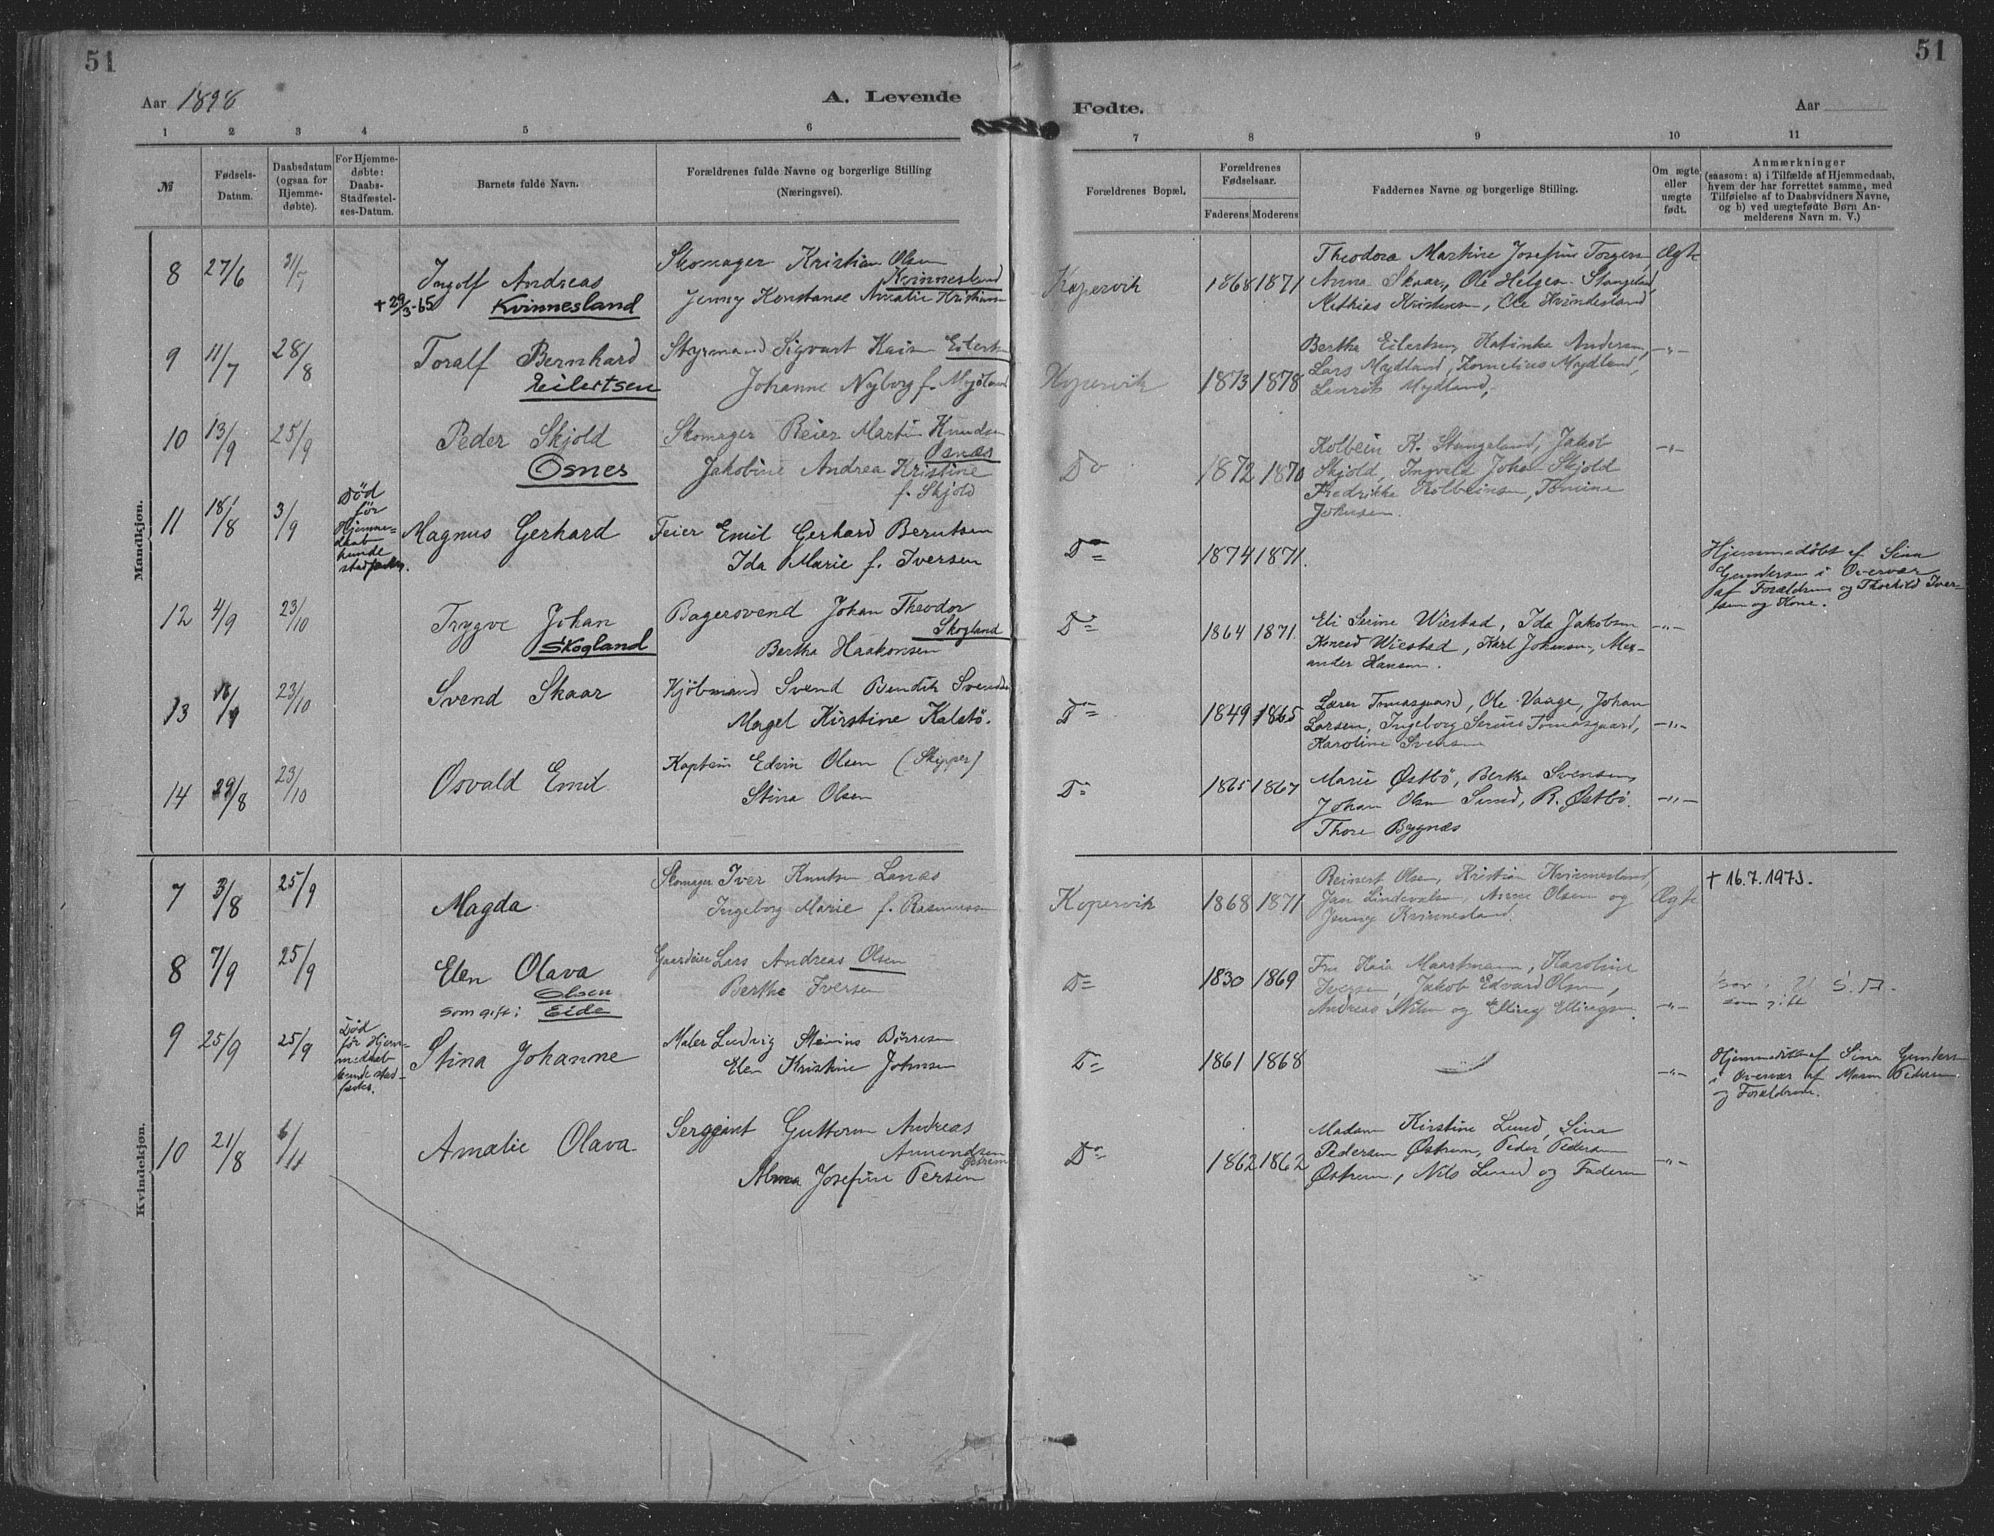 51
51
Aar 1898
A. Levende
Fødte.
Aar
1 2 3 4 5 6 7 8 9 10 11
№
Fødsels-
Datum.
Daabsdatum
(ogsaa for
Hjemme-
døbte).
For Hjemme-
døbte:
Daabs-
Stadfæstel-
ses-Datum.
Barnets fulde Navn.
Forældrenes fulde Navne og borgerlige Stilling
(Næringsvei).
Forældrenes Bopæl.
Forældrenes
Fødselsaar.
Faderens Moderens
Faddernes Navne og borgerlige Stilling.
Om ægte
eller
uægte
født.
Anmærkninger
(saasom: a) i Tilfælde af Hjemmedaab,
hvem der har forrettet samme, med
Tilføielse af to Daabsvidners Navne,
og b) ved uægtefødte Børn An-
melderens Navn m. V.)
Mandkjøn.
8 27/6 31/7
Ingolf Andreas
+ 29/3-65 Kvinnesland
Skomager Kristian Olsen
Kvinnesland
Jenny Konstanse Amalie Kristians
Kopervik
1868 1871
Theodora Martine Josefine Torgers
Anna Skaar, Ole Helgesn Stangeland
Mathias Kristensen, Ole Kvindesland
Ægte
9 11/7 28/8
Toralf Bernhard
Eilertsen
Styrmand Sigvart Kaisen Eilerts
Johanne Nyborg f. Mydland
Kopervik
1873 1878
Bertha Eilertsen, Katinka Andersen,
Lars Mydland, Kornelius Mydland,
Laurits Mydland,
-"-
10 13/9 25/9
Peder Skjold
Osnes
Skomager Reier Martin Knudsen
Osnæs
Jakobine Andrea Kristine
f. Skjold
Do
1872 1870
Kolbein K. Stangeland, Jakob
Skjold, Ingvald Johan Skjold
Fredrikke Kolbeinsen, Tomine
Johnsen.
-"-
11 18/8 3/9
Død
før
Hjemme-
daab
kunde
stadfæstes.
Magnus Gerhard
Feier Emil Gerhard Berntsen
Ida Marie f. Iversen
Do
1874 1871.
Hjemmedøbt af Sina
Gundersen i Overvær
af Forældrene og Thorkild Iver-
sen og Kone.
12 4/9 23/10
Trygve Johan
Skogland
Bagersvend Johan Theodor
Skogland
Bertha Haakonsen
Do
1864 1871.
Eli Serine Wiestad, Ida Jakobsen
Konrad Wiestad, Karl Johansen, Alex-
ander Hansen.
-"-
13 16/9 23/10
Svend Skaar
Kjøbmand Svend Bendik Svendsen
Magel Kirstine Kalstø.
Do
1849 1865
Lærer Tomasgaard, Ole Vaage, Johan
Larsen, Ingeborg Serine Tomasgaard,
Karoline Svensen
-"-
14 29/8 23/10
Osvald Emil
Kaptein Edvin Olsen (Skipper)
Stina Olsen
Do
1865 1867
Marie Østbø, Bertha Svensen,
Johan Olsen Sund, R. Østbø.
Thore Bygnæs
-"-
Kvindekjøn.
7 3/8 25/9
Magda
Skomager Iver Knutsen Lanæs
Ingeborg Marie f. Rasmussen
Kopervik
1868 1871
Reinert Olsen, Kristian Kvinnesland,
Jan Lindevalsn, Anne Olsen og
Jenny Kvinnesland.
Ægte
+ 16.7.1973.
8 7/9 25/9
Elen Olava
Olsen
som gift: Eide
Gaardeier Lars Andreas Olsen
Berthe Iversen
Do
1830 1869
Fru Kaia Maartmann, Karoline
Iversen, Jakob Edvard Olsen,
Andreas Nilsen og Elling Ellingsen.
-"-
som gift
9 25/9 25/9
Død
før Hjem-
medaab
kunde stad-
fæstes.
Stina Johanne
Maler Ludvig Steinius Børresen
Elen Kristine Johnsen
Do
1861 1868
-"-
Hjemmedøbt af Sina Gunders
i Overvær af Maren Pedersen
og Forældrene.
10 21/8 6/11
Amalie Olava
Sergeant Guttorm Andreas
Amundsen
Østrem
Alma Josefine Persen
Do
1862 1862
Madam Kirstine Lund, Sina
Pedersen Østrem, Peder Pedersen
Østrem, Nils Lund og Faderen
-"-